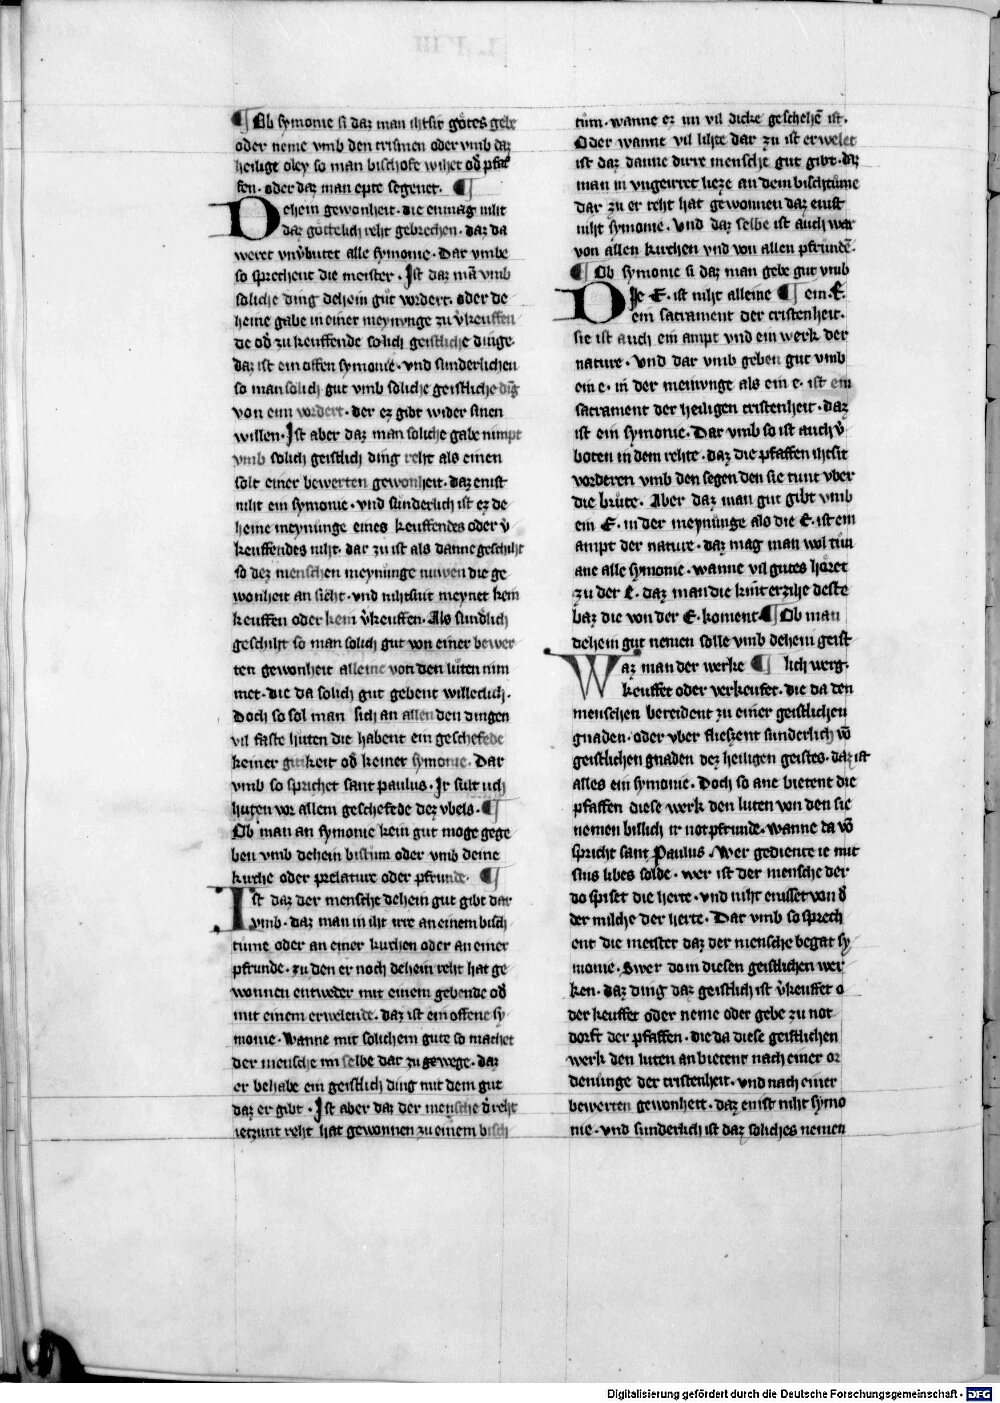 ¶ Ob symonie si daz man ihtsit gotes gebe
oder neme vmb den crismen oder vmb daz
heilige oley so man bischofe wihet od̓ pfaf
fen. oder daz man epte segenet. ¶
Dehein gewonheit. die enmag niht
daz gottelich reht gebrechen. daz da
weret vnv̓butet alle symonie. Dar vmbe
so sprechent die meister. Ist daz mā vmb
soliche ding dehein gůt vordert. oder de
heine gabe in einer meynvnge zu v̓keuffen
de od̓ zu keuffende solich geistliche dinge.
daz ist ein offen symonie. vnd sunderlichen
so man solich gut vmb soliche geistliche dīg
von eim vordert. der ez gibt wider sinen
willen. Ist aber daz man soliche gabe nimpt
vmb solich geistlich ding reht als einen
solt einer bewerten gewonheit. daz enist
niht ein symonie. vnd sunderlich ist ez de
heine meynunge eines keuffendes oder v̓
keuffendes niht. dar zu ist als danne geschiht
so dez menschen meynunge nuwen die ge
wonheit an siht. vnd nihtsnit meynet kein
keuffen oder kein v̓keuffen. Als sund̓lich
geschiht so man solich gut von einer bewer
ten gewonheit alleine von den luten nim
met. die da solich gut gebent willeclich.
Doch so sol man sich an allen den dingen
vil faste huten die habent ein geschefede
keiner gitikeit od̓ keiner symonie. Dar
vmb so sprichet sant paulus. Ir sult uch
huten vor allem geschefede dez vbels. ¶
Ob man an symonie kein gut moge gege
ben vmb dehein bistum oder vmb deine
kirche oder prelature oder pfrunde. ¶
Ist daz der mensche dehein gut gibt dar
vmb. daz man in iht irre an einem bisch
tume oder an einer kirchen oder an einer
pfrunde. zu den er noch dehein reht hat ge
wonnen entweder mit einem gebende od̓
mit einem erwelende. daz ist ein offene sy
monie. Wanne mit solichem gute so machet
der mensche im selbe dar zu gewege. daz
er behabe ein geistlich ding mit dem gut
daz er gibt. Ist aber daz der mensche d̓ reht
ietzunt reht hat gewonnen zu einem bisch
tům. wanne ez im vil dicke geschehē ist.
Oder wanne vil lihte dar zu ist erwelet
ist daz danne dirre mensche gut gibt. daz
man in vngeirret lieze an dem bischtume
dar zu er reht hat gewonnen daz enist
niht symonie. Vnd daz selbe ist auch war
von allen kirchen vnd von allen pfrundē.
¶ Ob symonie si daz man gebe gut vmb
Die E. ist niht alleine ¶ ein. E.
ein sacrament der cristenheit.
sie ist auch ein ampt vnd ein werk der
nature. Vnd dar vmb geben gut vmb
ein e. in der meinvnge als ein e. ist ein
sacrament der heiligen cristenheit. daz
ist ein symonie. Dar vmb so ist auch v̓
boten in dem rehte. daz die pfaffen ihtsit
vorderen vmb den segen den sie tunt vber
die brute. Aber daz man gut gibt vmb
ein E. in der meynunge als die E. ist ein
ampt der nature. daz mag man wol tun
ane alle symonie. wanne vil gutes horet
zu der E. daz man die kint erzihe deste
baz die von der E. koment. ¶ Ob man
dehein gut nemen solle vmb dehein geist
Waz man der werke ¶ lich werg.
keuffet oder verkeufet. die da den
menschen bereident zu einer geistlichen
gnaden. oder vber fliezent sunderlich vō
geistlichen gnaden dez heiligen geistes. daz ist
alles ein symonie. Doch so ane bietent die
pfaffen diese werk den luten von den sie
nemen billich ir notpfrunde. wanne da vō
spricht sant Paulus. Wer gediente ie mit
sins libes solde. wer ist der mensche der
do spiset die herte. vnd niht enisset von d̓
der milche der herte. Dar vmb so sprech
ent die meister daz der mensche begat sy
monie. Swer do in diesen geistlichen wer
ken. daz ding daz geistlich ist v̓keuffet o
der keuffet oder neme oder gebe zu not
dorft der pfaffen. die da diese geistlichen
werk den luten an bietent nach einer or
denunge der cristenheit. vnd nach einer
bewerten gewonheit. daz enist niht symo
nie. vnd sunderlich ist daz soliches nemen
Digitalisierung gefördert durch die Deutsche Forschungsgemeinschaft - DFG